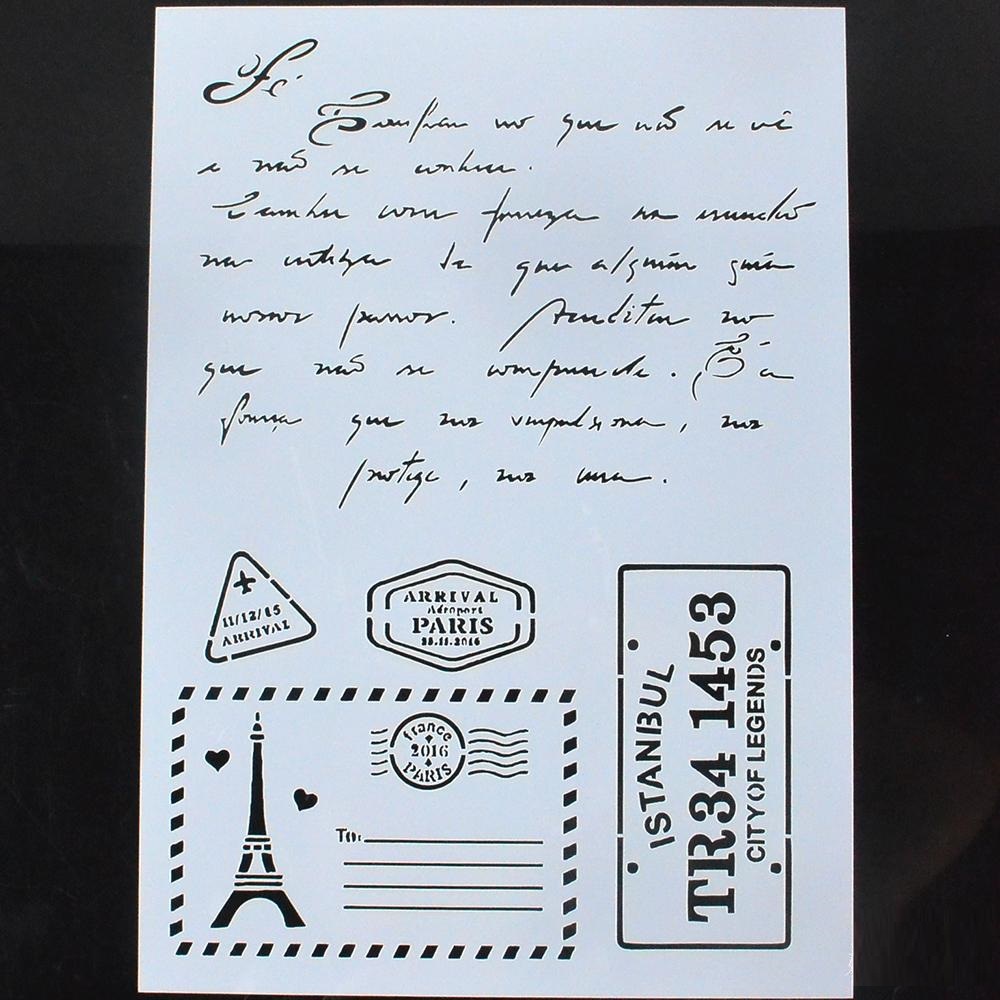 Fé
Confiar no que não se vê
e não se conhece.
Caminhar com firmeza na escuridão
na certeza de que alguém guia
nossos passos. Acreditar no
que não se compreende. É a
força que nos impulsiona, nos
protege, nos une.
11/12/15
ARRIVAL
ARRIVAL
Aéroport
PARIS
28.11.2016
france
2016
PARIS
To:
ISTANBUL
TR34 1453
CITY OF LEGENDS